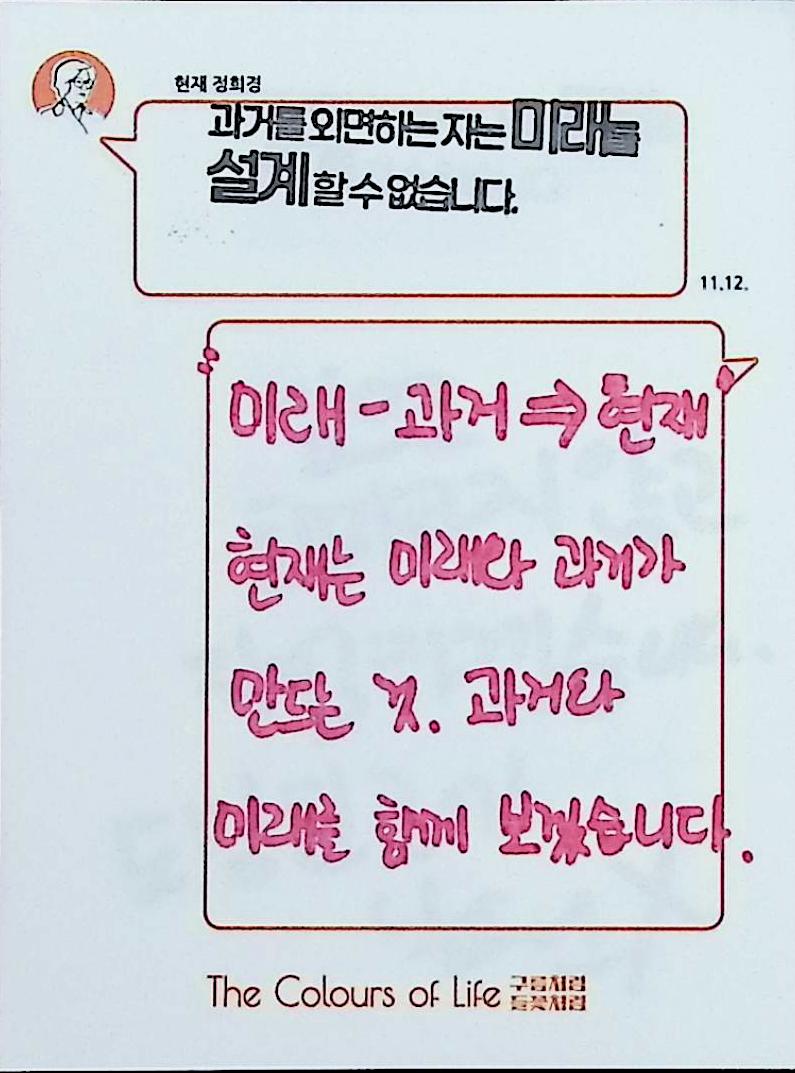 현재 정희경
과거를 외면하는 자는 미래를
설계 할 수 없습니다.
11.12.
미래 - 과거 ⇒ 현재
현재는 미래와 과거가
만드는 것. 과거와
미래를 함께 보겠습니다.
The Colours of Life 구름처럼
들꽃처럼